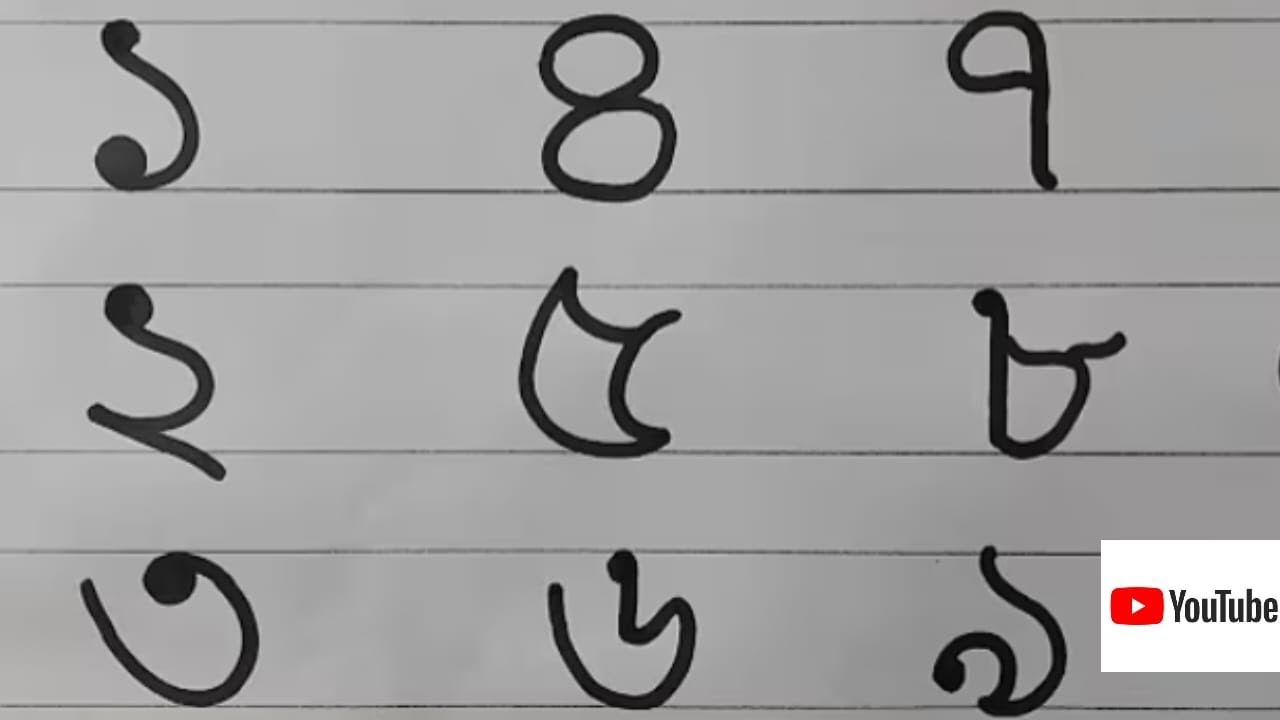 ১ ৪ ৭
২ ৫ ৮
৩ ৬ ৯
YouTube